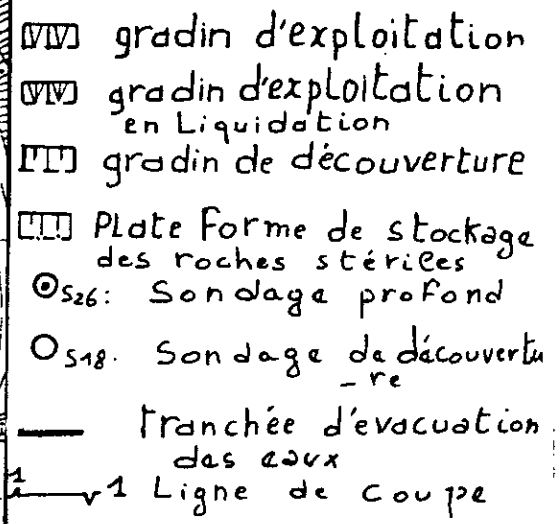 gradin d'exploitation
gradin d'exploitation
en Liquidation
gradin de découverture
Plate Forme de stockage
des roches stériles
S26: Sondage profond
S18. Sondage de découvertu
-re
Tranchée d'evacuation
des eaux
1 1 Ligne de coupe